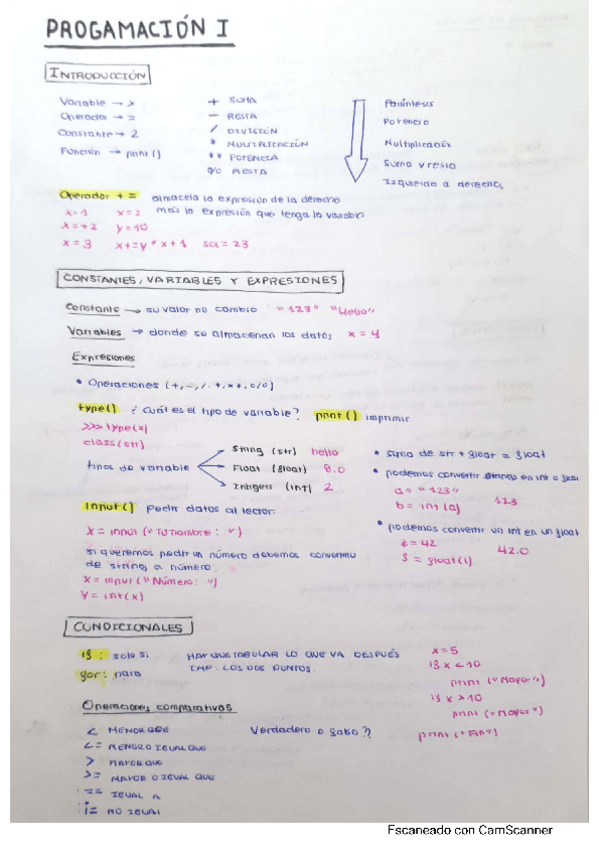 PROGAMACIÓN I
INTRODUCCIÓN
Variable → x
Operador → =
Constante → 2
Función → print ()
+ SUMA
- RESTA
/ DIVISIÓN
* MULTIPLICACIÓN
** POTENCIA
% RESTA
Paréntesis
Potencia
Multiplicación
Suma y resta
Izquierda a derecha
Operador + = almacela la expresión de la derecha
más la expresión que tenga la variable
x = 1 x = 2
x = +2 y = 10
x = 3 x += y * x + 1 sol = 23
CONSTANTES, VARIABLES Y EXPRESIONES
Constante → su valor no cambia "123" "Hello"
Variables → donde se almacenan los datos x = 4
Expresiones
• Operaciones (+, -, /, *, **, %)
type() ¿Cuál es el tipo de variable? print () imprimir
>>> type(x)
class (str)
tipos de variable
String (str) hello
Float (float) 8.0
Integers (int) 2
• suma de str + float = float
• podemos convertir strings en int o float
a = "123"
b = int (a) 123
• podemos convertir un int en un float
= 42
= float(i) 42.0
input () Pedir datos al lector.
X = input ("Tu nombre : ")
si queremos pedir un número debemos convertirlo
de string a número.
X = input ("Número: ")
Y = int (x)
CONDICIONALES
if : solo si
for : para
HAY QUE TABULAR LO QUE VA DESPUÉS
LOS DOS PUNTOS.
x = 5
if x < 10
print ("Mayor")
if x > 10
print ("Mayor")
print ("Fin")
Operaciones comparativas
< MENOR QUE
<= MENOR O IGUAL QUE
> MAYOR QUE
>= MAYOR O IGUAL QUE
== IGUAL A
¡= NO IGUAL
Verdadero o falso ??
Escaneado con CamScanner